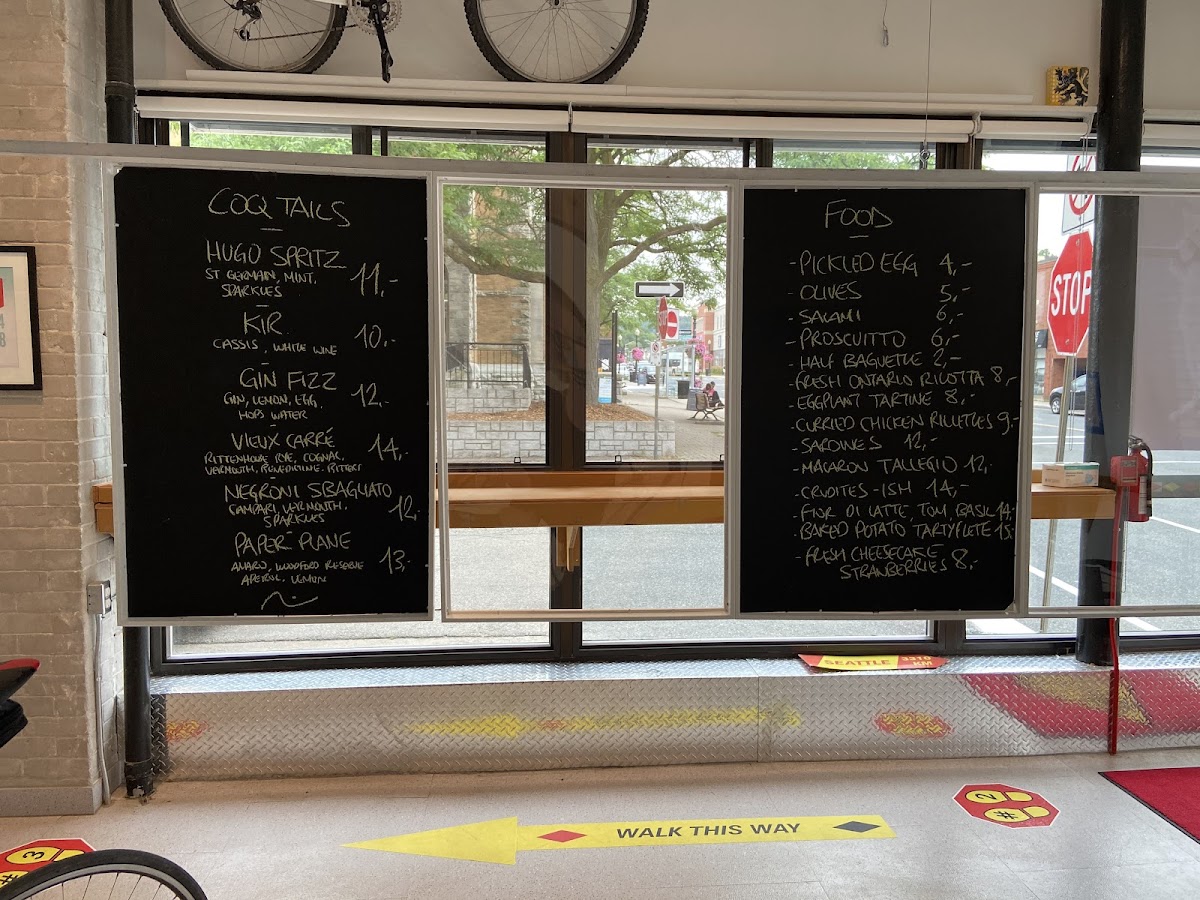 COCQTAILS
HUGO SPRITZ
ST GERMAIN, MINT,
SPARKLES
11,-
KIR
CASSIS, WHITE WINE
10,-
GIN FIZZ
GIN, LEMON, EGG,
HOPS WATER
12,-
VIEUX CARRÉ
RITTENHOUSE RYE, COGNAC,
VERMOUTH, BENEDICTINE, BITTERS
14,-
NEGRONI SBAGLIATO
CAMPARI, VERMOUTH,
SPARKLES
12,-
PAPER PLANE
AMARO, WOODFORD RESERVE
APEROL, LEMON
13,-
FOOD
- PICKLED EGG 4,-
- OLIVES 5,-
- SALAMI 6,-
- PROSCUITTO 6,-
- HALF BAGUETTE 2,-
- FRESH ONTARIO RICOTTA 8,-
- EGGPLANT TARTINE 8,-
- CURRIED CHICKEN RILLETTES 9,-
- SARDINES 12,-
- MACARON TALLEGIO 12,-
- CRUDITES-ISH 14,-
- FIOR DI LATTE TOM BASIL 14-
- BAKED POTATO TARTYFLETE 15-
- FRESH CHEESECAKE
STRAWBERRIES 8,-
STOP
SEATTLE 3310
KM
WALK THIS WAY
#2
#3